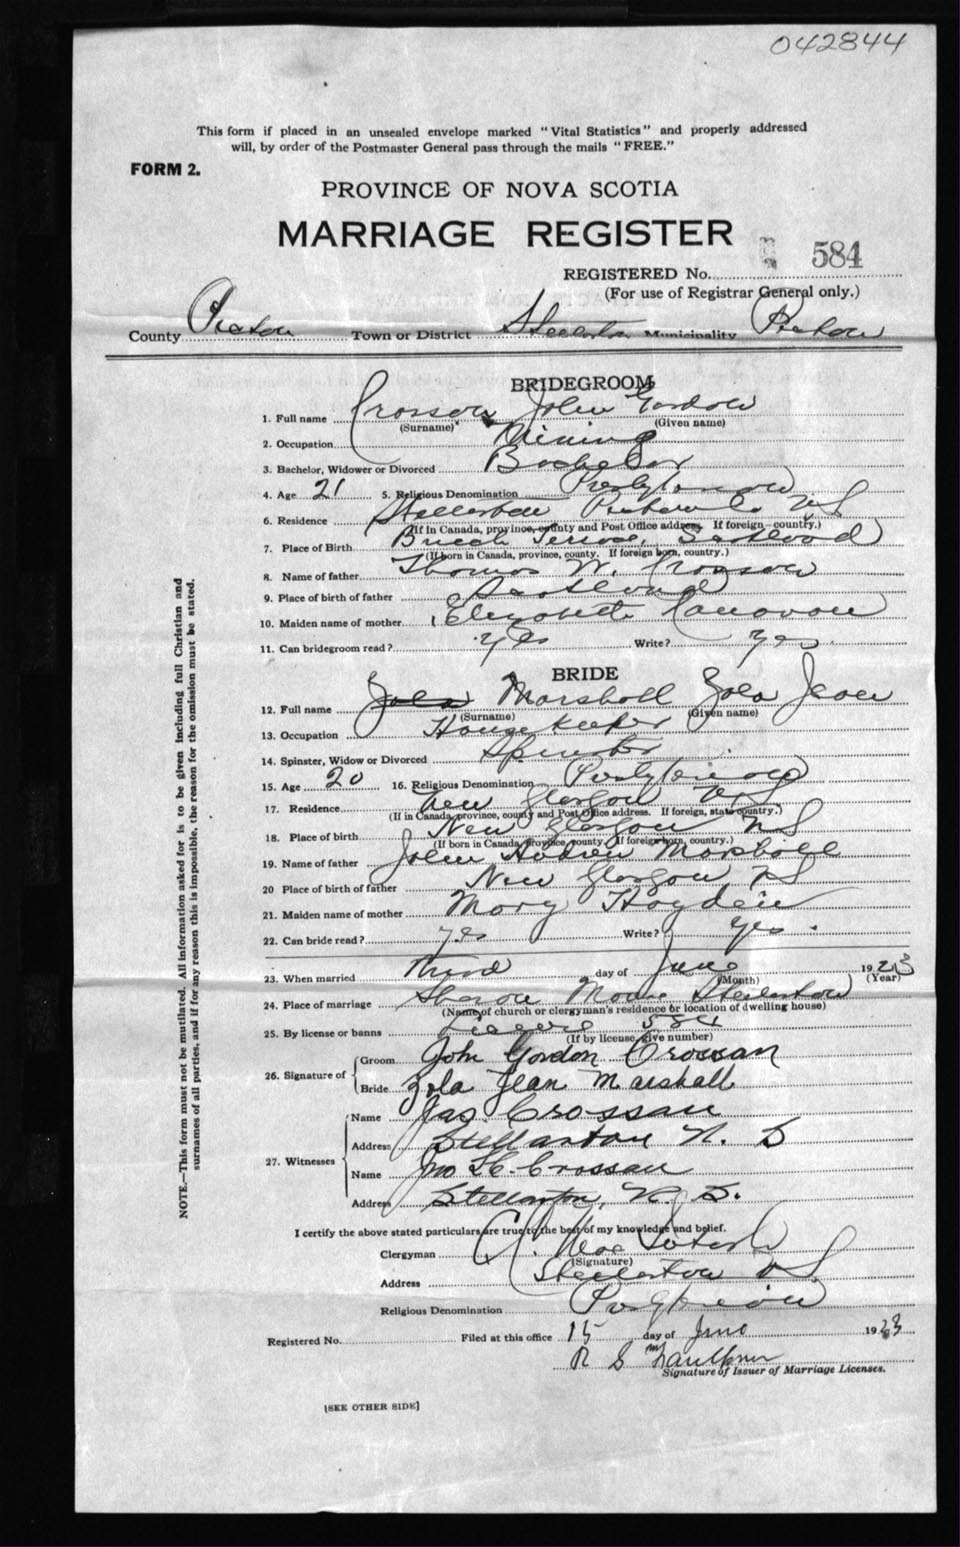 042844
This form if placed in an unsealed envelope marked "Vital Statistics" and properly addressed
will, by order of the Postmaster General pass through the mails "FREE."
FORM 2.
PROVINCE OF NOVA SCOTIA
MARRIAGE REGISTER
REGISTERED No. 584
(For use of Registrar General only.)
County Pictou Town or District Stellarton Municipality Pictou
BRIDEGROOM
1. Full name Crossan John Gordon
(Surname) (Given name)
2. Occupation Mining
3. Bachelor, Widower or Divorced Bachelor
4. Age 21 5. Religious Denomination Presbyterian
6. Residence Stellarton Pictou Co NS
(If in Canada, province, county and Post Office address. If foreign country.)
7. Place of Birth Terrace, Scotland
(If born in Canada, province, county. If foreign born, country.)
8. Name of father Thomas W. Crossan
9. Place of birth of father Scotland
10. Maiden name of mother Elizabeth
11. Can bridegroom read? yes Write? yes
BRIDE
12. Full name Zola Marshall Zola Jean
(Surname) (Given name)
13. Occupation House keeper
14. Spinster, Widow or Divorced Spinster
15. Age 20 16. Religious Denomination Presbyterian
17. Residence New Glasgow NS
(If in Canada, province, county and Post Office address. If foreign, state country.)
18. Place of birth New Glasgow NS
(If born in Canada, province, county. If foreign born, country.)
19. Name of father John Andrew Marshall
20 Place of birth of father New Glasgow NS
21. Maiden name of mother Mary Hayden
22. Can bride read? yes Write? yes.
23. When married Third day of June 1923
(Month) (Year)
24. Place of marriage Sharon Manse Stellarton
(Name of church or clergyman's residence or location of dwelling house)
25. By license or banns License 584
(If by license, give number)
26. Signature of Groom John Gordon Crossan
Bride Zola Jean Marshall
27. Witnesses Name Jas. Crossan
Address Stellarton N. S
Name Jno Crossan
Address Stellarton, N. S.
I certify the above stated particulars are true to the best of my knowledge and belief.
Clergyman
(Signature)
Address Stellarton NS
Religious Denomination Presbyterian
Registered No. Filed at this office 15 day of June 1923
R S McFaulkner
Signature of Issuer of Marriage Licenses.
[SEE OTHER SIDE]
NOTE.—This form must not be mutilated. All information asked for is to be given including full Christian and
surnames of all parties, and if for any reason this is impossible, the reason for the omission must be stated.